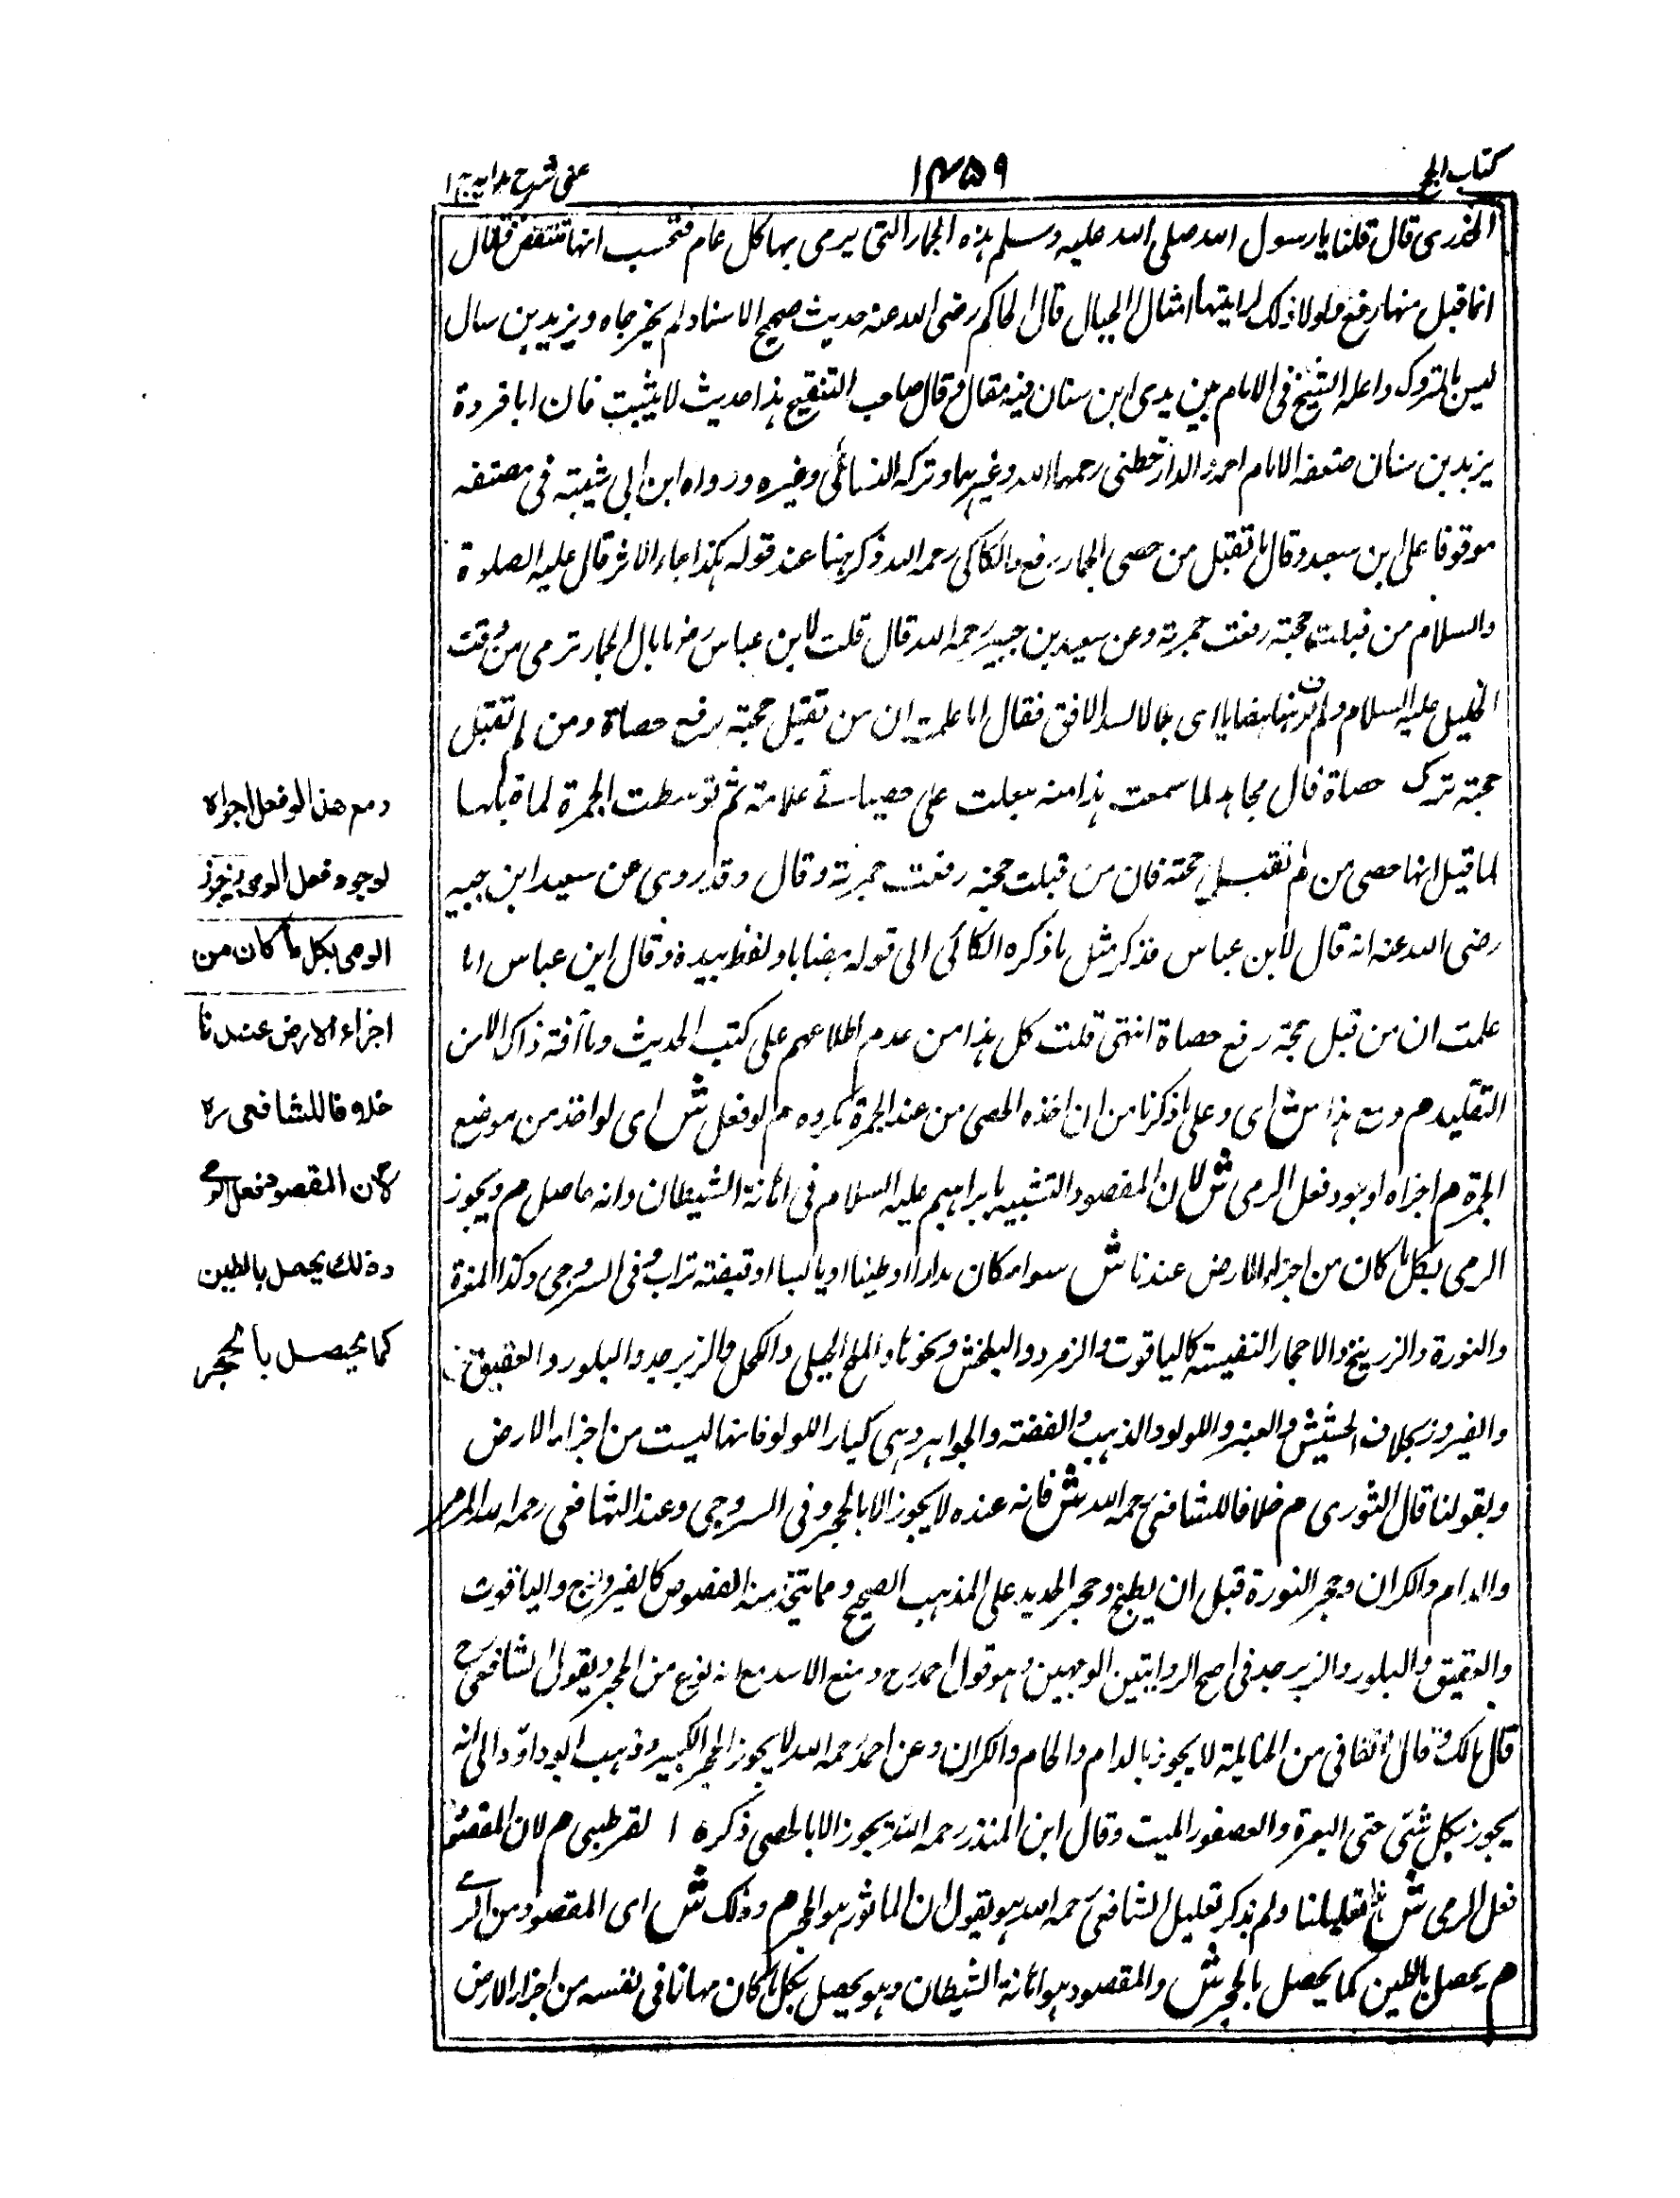 كتاب الحج
١٤٥٩
عينى شرح هدايه ج ١
الخدرى قال قلنا يا رسول الله صلى الله عليه وسلم هذه الجمار التى يرمى بها كل عام فتحسب انها تنقص فقال
انما قبل منها رفع ولولا ذلك لرايتها امثال الجبال قال الحاكم رضى الله عنه حديث صحيح الاسناد ولم يخرجاه ويزيد بن سنان
ليس بالمتروك واعله الشيخ فى الامام بيزيد ابن سنان فيه مقال وقال صاحب التنقيح هذا حديث لا يثبت فان ابا فروة
يزيد بن سنان ضعفه الامام احمد والدارقطنى رحمهما الله وغيرهما وتركه النسائى وغيره ورواه ابن ابى شيبة فى مصنفه
موقوفا على ابن سعيد وقال ما تقبل من حصى الجمار رفع والكاكى رحمه الله ذكر هنا عند قوله هكذا جاء الاثر قال عليه الصلوة
والسلام من قبلت حجته رفعت جمرته وعن سعيد بن جبير رحمه الله قال قلت لابن عباس رض ما بال الجمار ترمى من وقت
الخليل عليه السلام ولم هضابا اى جبالا لسد الافق فقال اما علمت ان من تقبل حجته رفع حصاة ومن لم تقبل
حجته ترك حصاة قال مجاهد لما سمعت هذا منه جعلت على حصياتى علامة ثم توسطت الجمرة
لما قيل انها حصى من لم تقبل حجته فان من قبلت حجته رفعت جمرته وقال وقد روى عن سعيد ابن جبير
رضى الله عنه انه قال لابن عباس فذكر مثل ما ذكره الكاكى الى قوله هضابا وقال ابن عباس اما
علمت ان من قبل حجه رفع حصاة انتهى قلت كل هذا من عدم اطلاعهم على كتب الحديث وما آفة ذاك الا من
التقليد م ومع هذا ش اى وعلى ما ذكرنا من ان اخذه الحصى من عند الجمرة مكروه م لو فعل ش اى لو اخذ من موضع
الجمرة م اجزاه لوجود فعل الرمى ش لان المقصود التشبيه بابراهيم عليه السلام فى اهانة الشيطان وانه حاصل م ويجوز
الرمى بكل ما كان من اجزاء الارض عندنا ش سواء كان مدارا او طينا او يابسا او قبضة تراب وفى السروجى وكذا المغرة
والنورة والزرنيخ والاحجار النفيسة كالياقوت والزمرد والبلخش ونحوها والملح الجبلى والكحل والزبرجد والبلور والعقيق
والفيروزج بخلاف الحشيش والعنبر واللولو والذهب والفضة والجواهر وهى كبار اللولو فانها ليست من اجزاء الارض
وبقولنا قال الثورى م خلافا للشافعى رحمه الله ش فانه عنده لا يجوز الا بالحجر وفى السروجى وعند الشافعى رحمه الله المرمر
والبرام والكران وحجر النورة قبل ان يطبخ وحجر الحديد على المذهب الصحيح وما يتخذ منه الفصوص كالفيروزج والياقوت
والعقيق والبلور والزبرجد فى اصح الروايتين الوجهين وهو قول احمد رح ومنع الاسد مع انه نوع من الحجر وبقول الشافعى رح
قال مالك وقال من الحنابلة لا يجوز بالبرام والخام والكران وعن احمد رحمه الله لا يجوز الحجر الكبير وذهب ابو داؤد الى انه
يجوز بكل شئ حتى البعرة والعصفور الميت وقال ابن المنذر رحمه الله لا يجوز الا بالحصى ذكره القرطبى م لان المقصود
فعل الرمى ش هذا تعليلنا ولم يذكر تعليل الشافعى رحمه الله هو يقول ان الماثور هو الحجر م وذلك ش اى المقصود من الرمى
م يحصل بالطين كما يحصل بالحجر ش والمقصود هو اهانة الشيطان وهو يحصل بكل ما كان مهانا فى نفسه من اجزاء الارض
ومع هذا لو فعل اجزاه
لوجود فعل الرمى ويجوز
الرمى بكل ما كان من
اجزاء الارض عندنا
خلافا للشافعى ره
لان المقصود فعل الرمى
وذلك يحصل بالطين
كما يحصل بالحجر